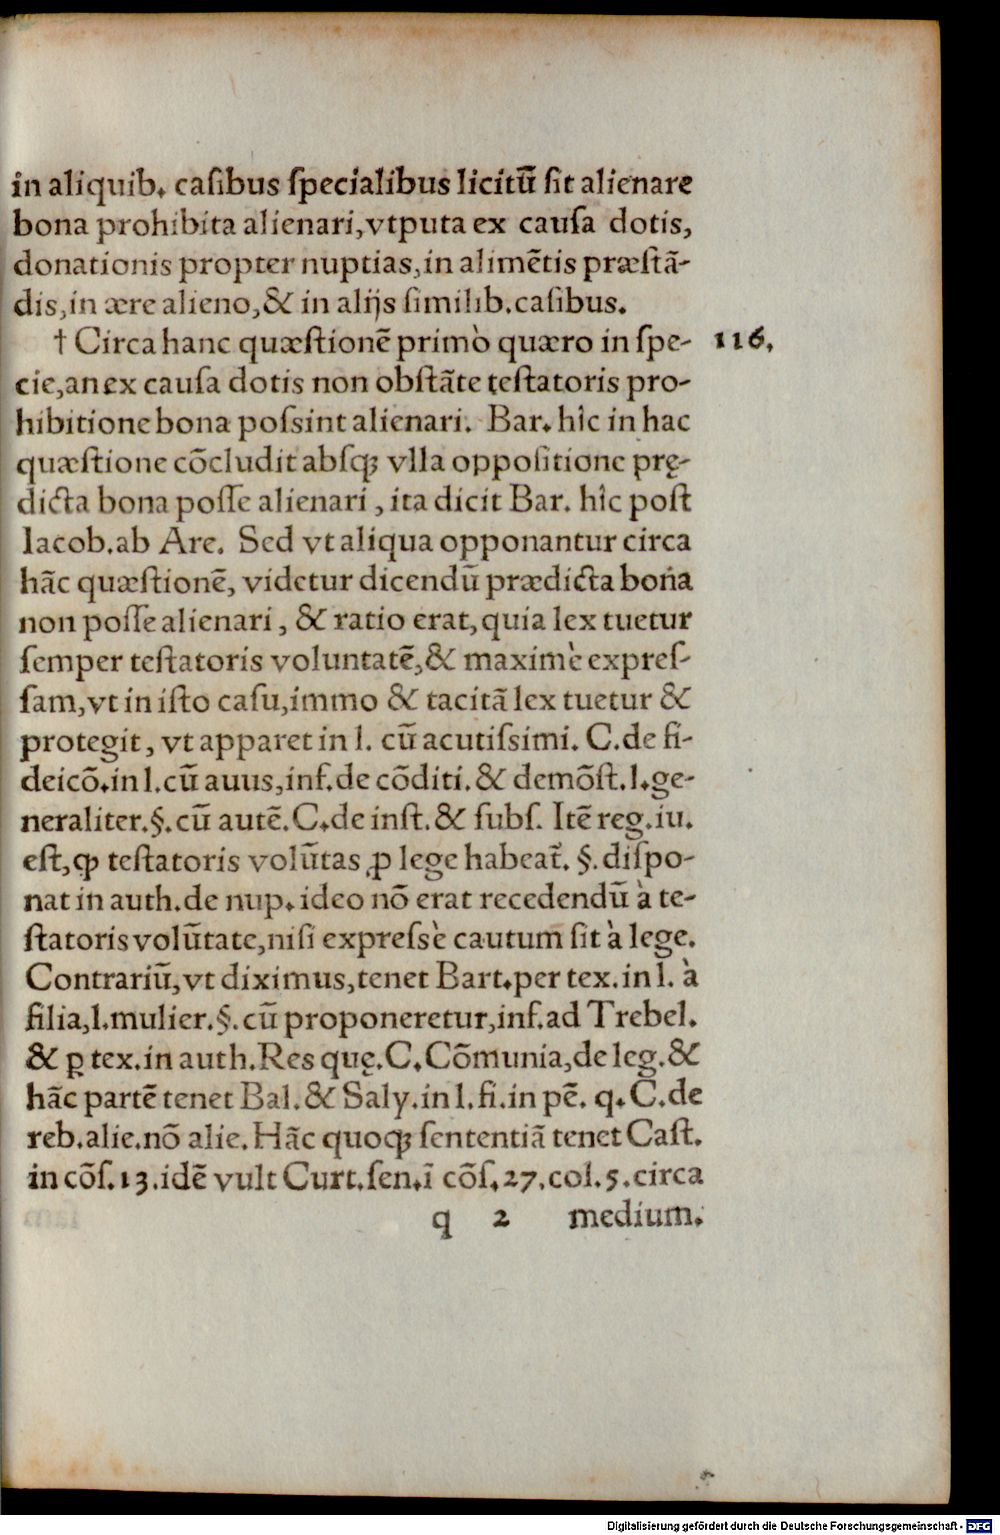 in aliquib. caſibus ſpecialibus licitū ſit alienare
bona prohibita alienari,vtputa ex cauſa dotis,
donationis propter nuptias,in alimētis præſtā-
dis,in ære alieno,& in alijs ſimilib.caſibus.
† Circa hanc quæſtionē primò quæro in ſpe- 116.
cie,an ex cauſa dotis non obſtāte teſtatoris pro-
hibitione bona poſsint alienari. Bar. hîc in hac
quæſtione cōcludit abſqꝫ vlla oppoſitione prę-
dicta bona poſſe alienari , ita dicit Bar. hîc poſt
Iacob.ab Are. Sed vt aliqua opponantur circa
hāc quæſtionē, videtur dicendū prædicta bona
non poſſe alienari , & ratio erat,quia lex tuetur
ſemper teſtatoris voluntatē,& maximè expreſ-
ſam,vt in iſto caſu,immo & tacitā lex tuetur &
protegit, vt apparet in l. cū acutiſsimi. C.de fi-
deicō.in l.cū auus,inf.de cōditi.& demōſt.l.ge-
neraliter.§.cū autē.C.de inſt.& ſubſ. Itē reg.iu.
eſt,ꝙ teſtatoris volūtas ꝓ lege habeat̄. §.diſpo-
nat in auth.de nup.ideo nō erat recedendū à te-
ſtatoris volūtate,niſi expreſsè cautum ſit à lege.
Contrariū,vt diximus,tenet Bart.per tex.in l. à
filia,l.mulier.§.cū proponeretur,inf.ad Trebel.
& ꝑ tex.in auth.Res quę.C.Cōmunia,de leg.&
hāc partē tenet Bal.& Saly.in l.fi.in pē. q.C.de
reb.alie.nō alie.Hāc quoqꝫ ſententiā tenet Caſt.
in cōſ.13.idē vult Curt.ſen.ī cōſ.27.col.5.circa
q 2 medium.
Digitalisierung gefördert durch die Deutsche Forschungsgemeinschaft - DFG